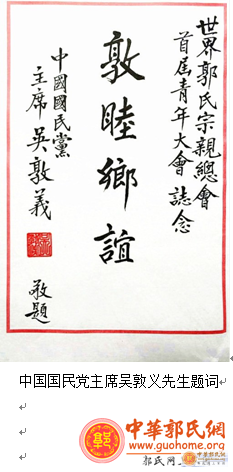 世界郭氏宗親總會
首屆青年大會誌念
敦睦鄉誼
中國國民黨
主席吳敦義
敬題
中国国民党主席吴敦义先生题词
中華郭氏網
www.guohome.org
郭氏网